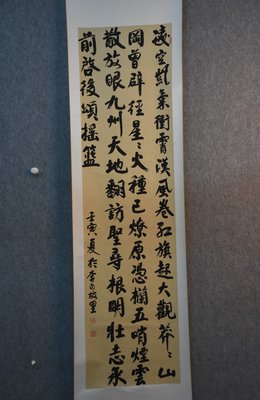 凌空凱氣衝霄漢風卷紅旗赴大觀莽〻山
岡曾辟徑星〻火種已燎原憑欄五哨煙雲
散放眼九州天地翻訪聖尋根明壯志承
前啓後頌搖籃
壬寅夏於李白故里